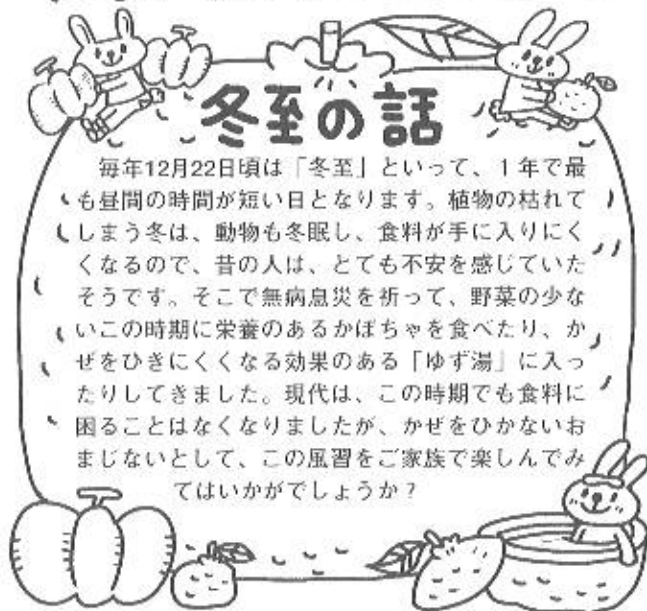 冬至の話
毎年12月22日頃は「冬至」といって、1年で最
も昼間の時間が短い日となります。植物の枯れて
しまう冬は、動物も冬眠し、食料が手に入りにく
くなるので、昔の人は、とても不安を感じていた
そうです。そこで無病息災を祈って、野菜の少な
いこの時期に栄養のあるかぼちゃを食べたり、か
ぜをひきにくくなる効果のある「ゆず湯」に入っ
たりしてきました。現代は、この時期でも食料に
困ることはなくなりましたが、かぜをひかないお
まじないとして、この風習をご家族で楽しんでみ
てはいかがでしょうか?